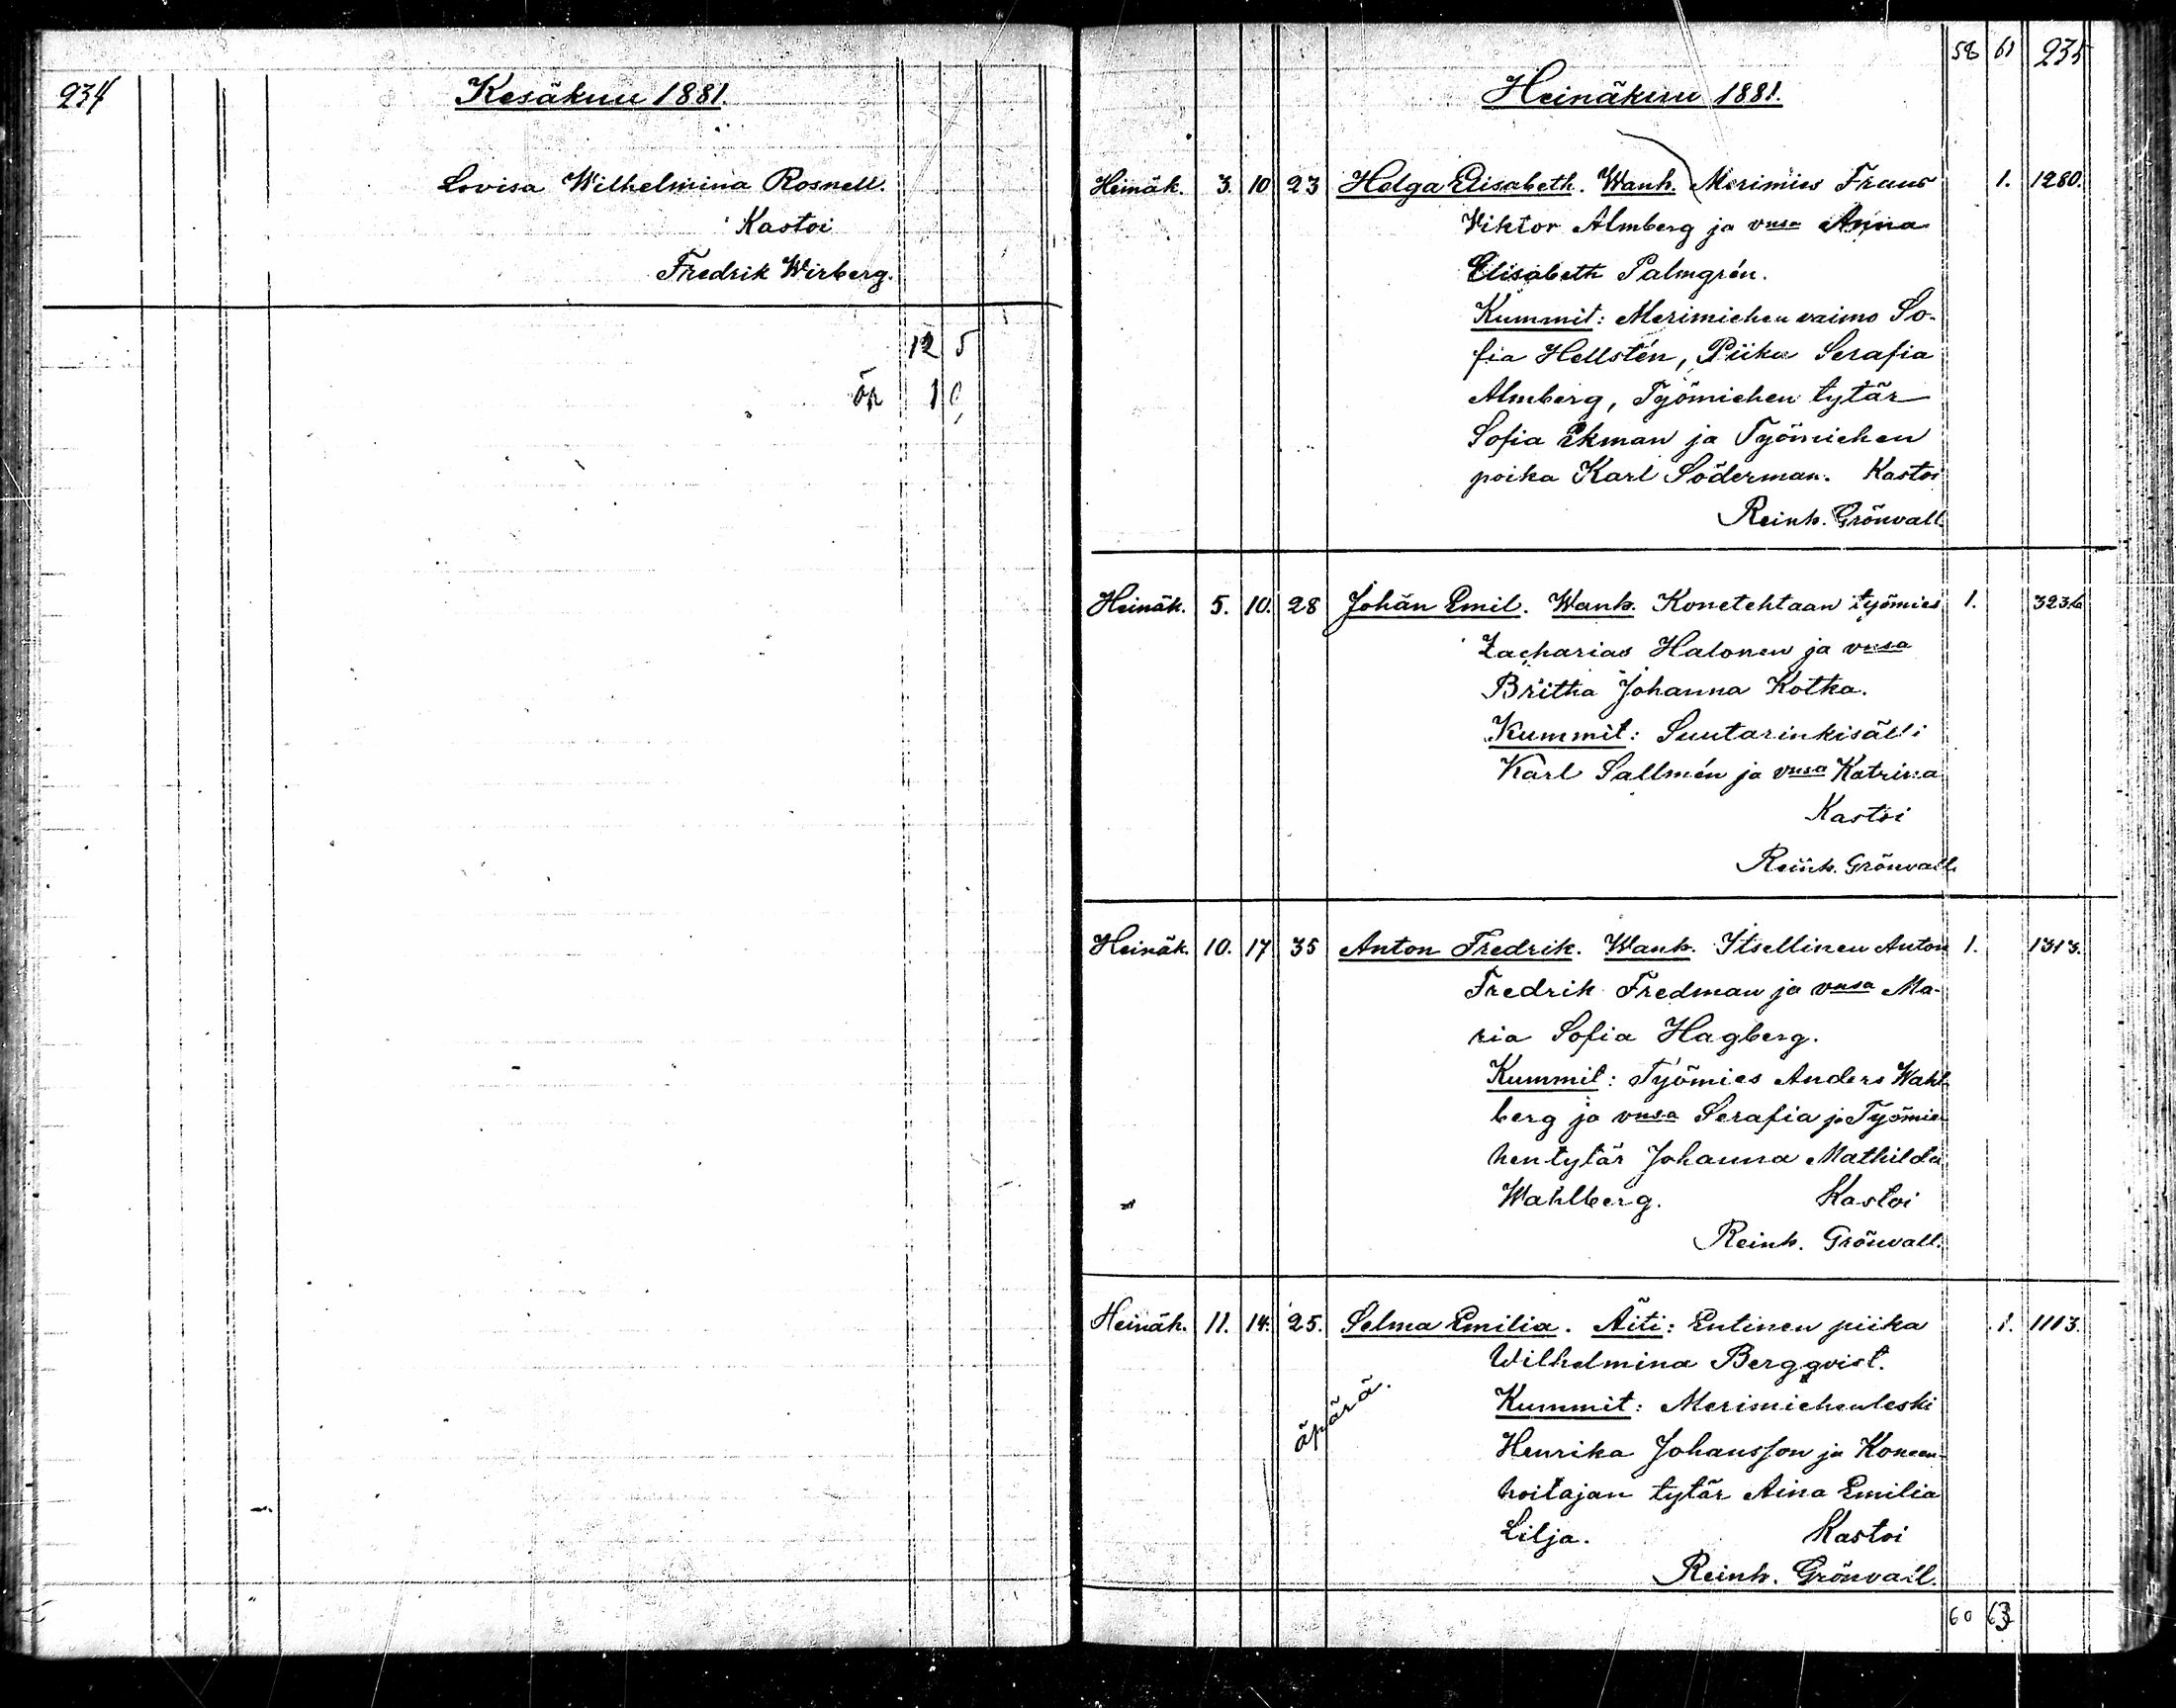 234
Kesäkuu 1881.
Lovisa Wilhelmina Rosnell.
Kastoi
Fredrik Wirberg.
12 5
äp 1 0
58 61 235
Heinäkuu 1881.
Heinäk. 3. 10 23 Helga Elisabeth. Wanh. Merimies Frans 1. 1280.
Viktor Almberg ja vnsa Anna
Elisabeth Palmgrén.
Kummit: Merimiehen vaimo So-
fia Hellstén, Piika Serafia
Almberg, Työmiehen tytär
Sofia Ekman ja Työmiehen
poika Karl Söderman. Kastoi
Reinh. Grönvall.
Heinäk. 5. 10. 28 Johan Emil. Wanh. Konetehtaan työmies 1. 3236
Zacharias Halonen ja vnsa
Britha Johanna Kotka.
Kummit: Suutarinkisälli
Karl Sallmén ja vnsa Katrina
Kastoi
Reinh. Grönvall.
Heinäk. 10. 17 35 Anton Fredrik. Wanh. Itsellinen Anton 1. 1313.
Fredrik Fredman ja vnsa Ma-
ria Sofia Hagberg.
Kummit: Työmies Anders Wahl-
berg ja vnsa Serafia ja Työmie-
hen tytär Johanna Mathilda
Wahlberg. Kastoi
Reinh. Grönvall.
Heinäk. 11. 14. 25. Selma Emilia. Äiti: Entinen piika 1. 1113.
Wilhelmina Bergqvist.
äpärä.
Kummit: Merimiehenleski
Henrika Johansson ja Koneen-
hoitajan tytär Aina Emilia
Lilja. Kastoi
Reinh. Grönvall.
60 63